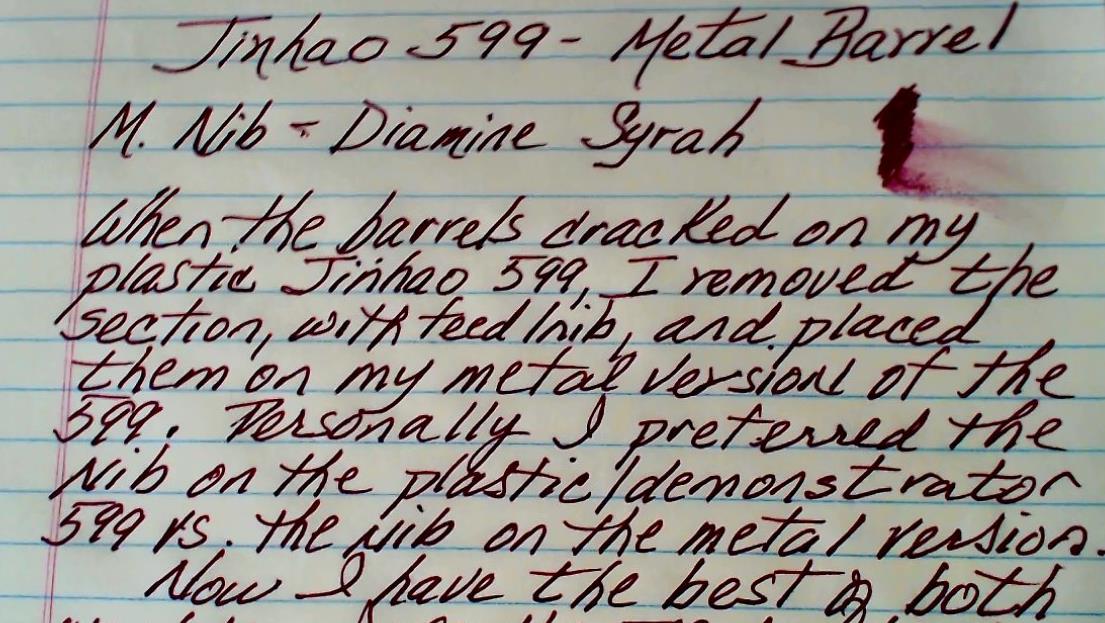 Jinhao 599 - Metal Barrel
M. Nib - Diamine Syrah
When the barrels cracked on my
plastic Jinhao 599, I removed the
section, with feed/nib, and placed
them on my metal version of the
599. Personally I preferred the
Nib on the plastic/demonstrator
599 vs. the nib on the metal version.
Now I have the best of both